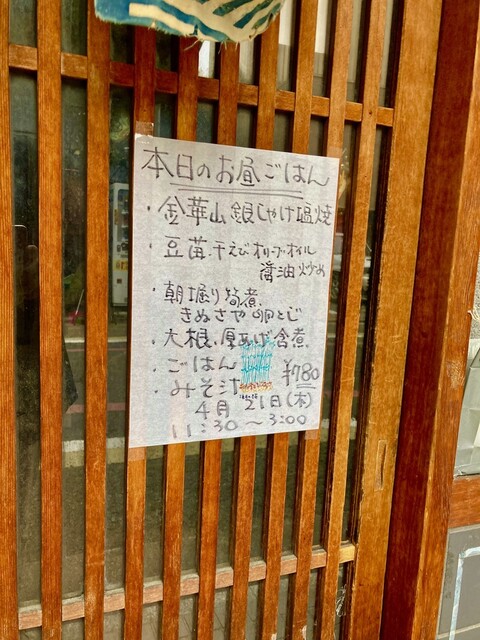 本日のお昼ごはん
・金華山銀しゃけ塩焼
・豆苗.干えびオリーブオイル
醤油炒め
・朝堀り筍煮.
きぬさや卵とじ
・大根.厚あげ含煮.
ごはん
・みそ汁 ¥780
4月21日(木)
11:30～3:00